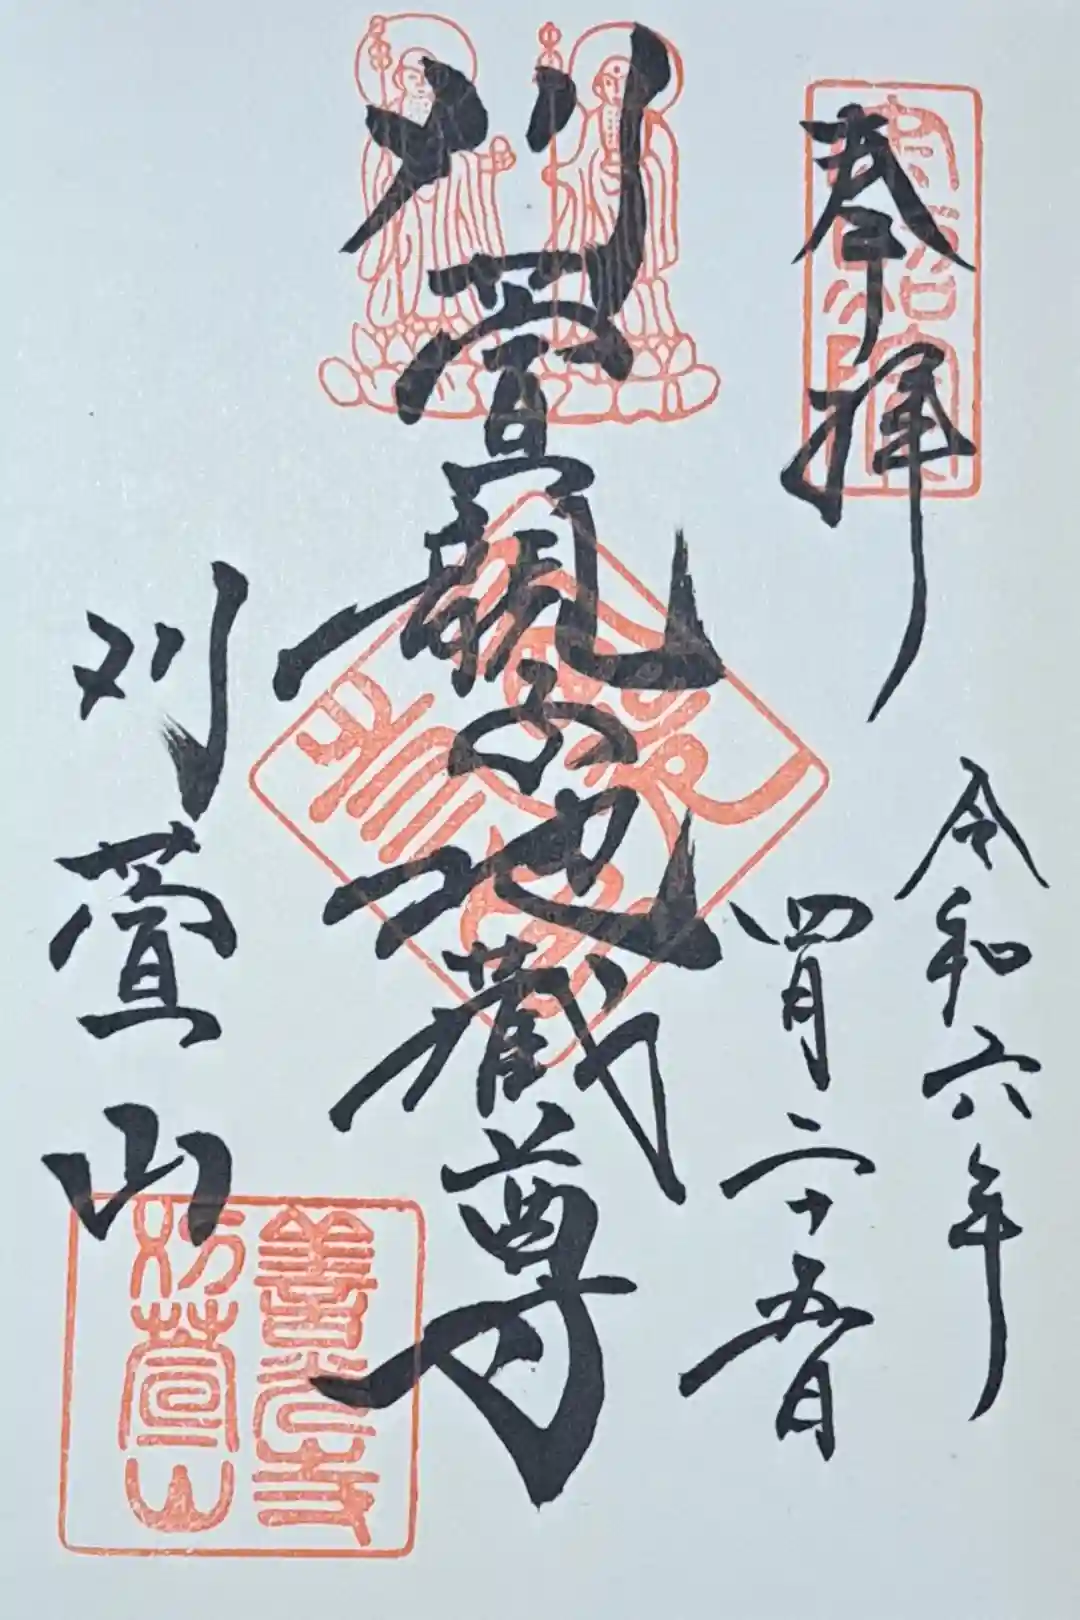 奉拝
令和六年
四月二十五日
刈萱親子地蔵尊
刈萱山
善光寺
苅萱山